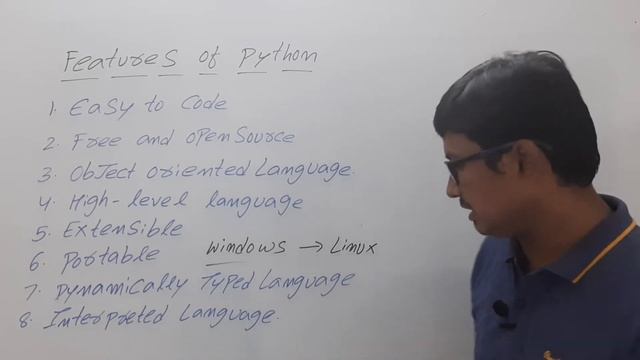 Features of Python
1. Easy to Code
2. Free and open Source
3. Object oriented Language.
4. High-level language
5. Extensible
6. Portable Windows → Linux
7. Dynamically Typed Language
8. Interpreted Language.